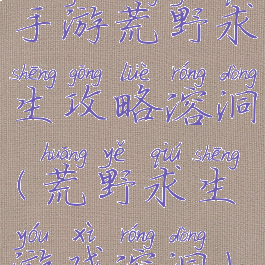 手游荒野求
shēng gōng lüè róng dòng
生攻略溶洞
huāng yě qiú shēng
(荒野求生
yóu xì róng dòng
游戏溶洞)